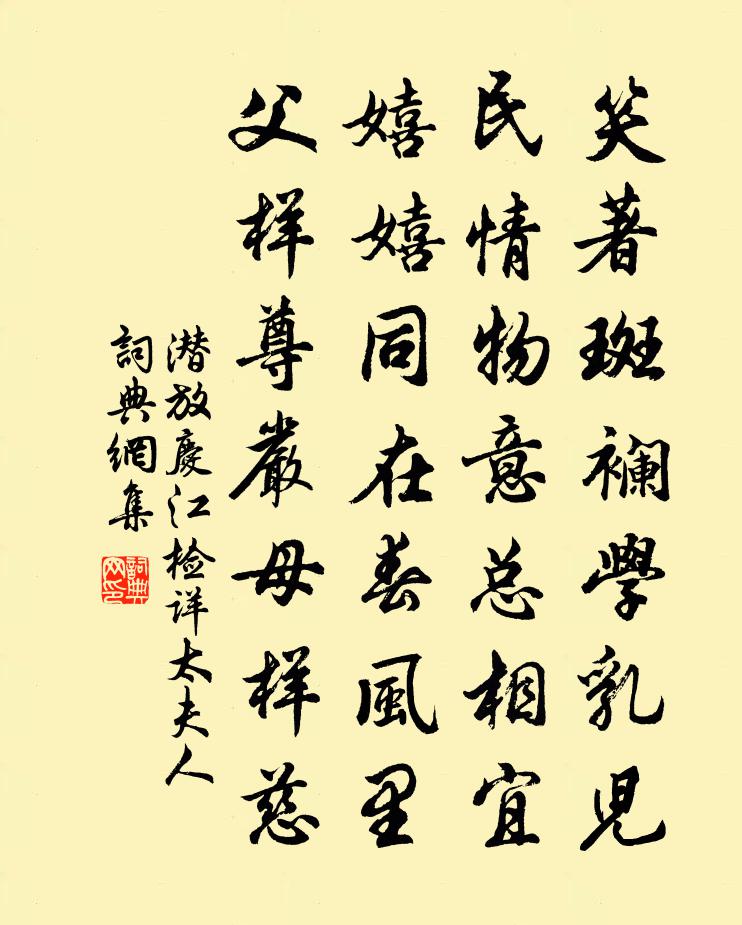 笑著斑襴學乳児
民情物意总相宜
嬉嬉同在春風里
父样尊嚴母样慈
潜放慶江檢详太夫人
詞典網集
詞典
网印